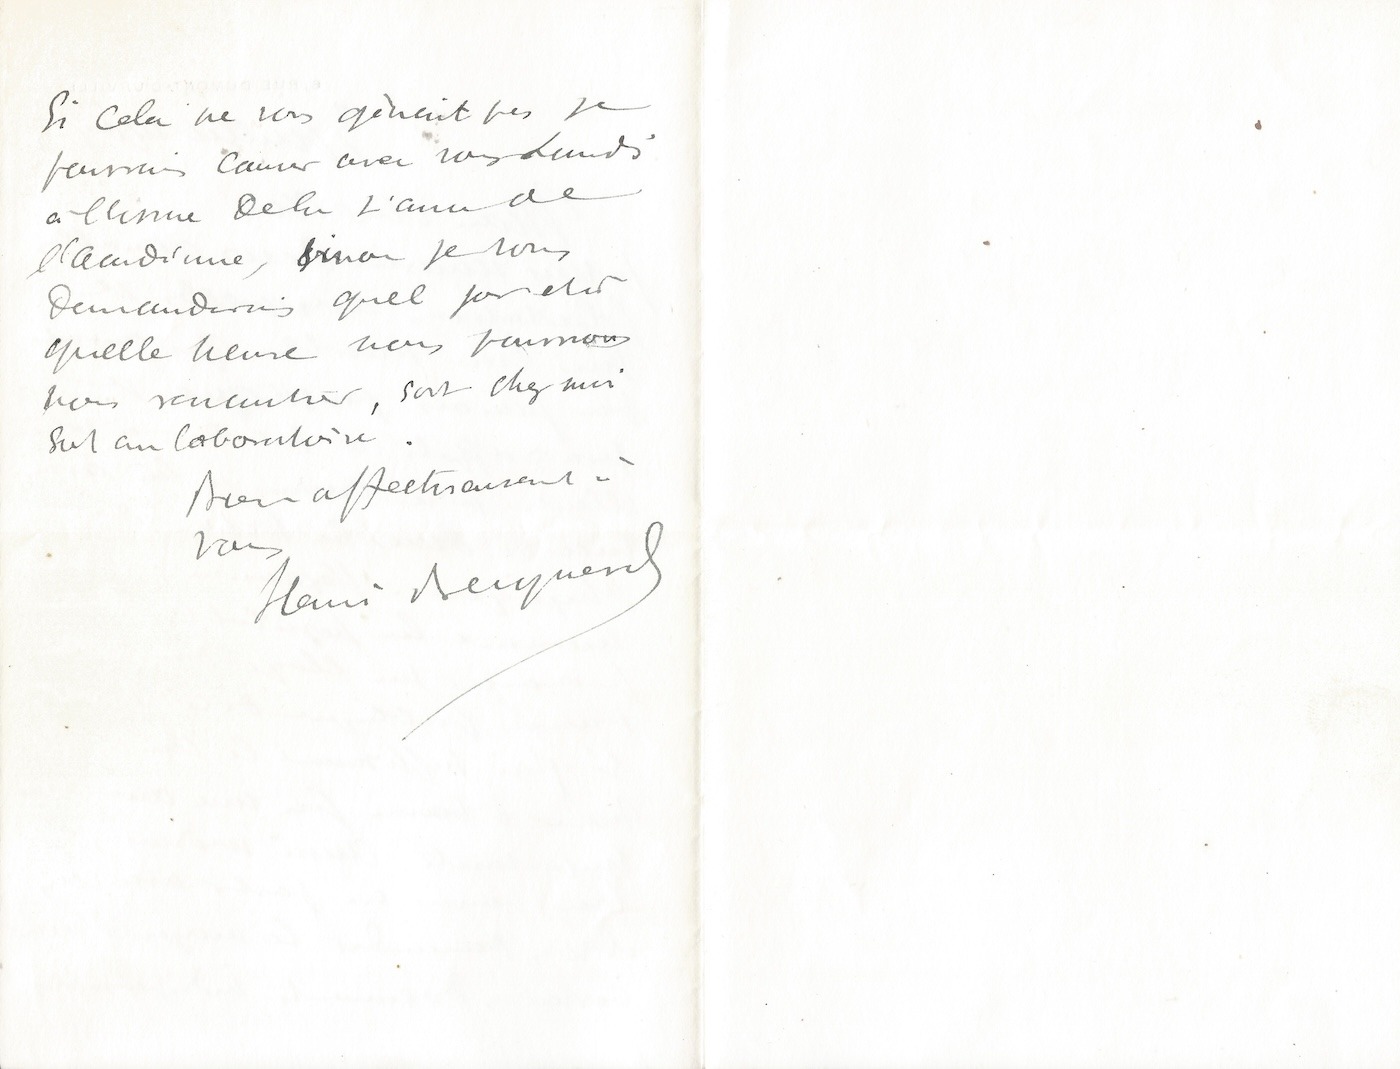 Si cela ne vous gênait pas je
pourrais causer avec vous Lundi
à l'issue de la séance de
l'Académie, sinon je vous
demanderais quel jour et à
quelle heure nous pourrions
nous rencontrer, soit chez moi
soit au laboratoire.
Bien affectueusement à
vous
Henri Becquerel